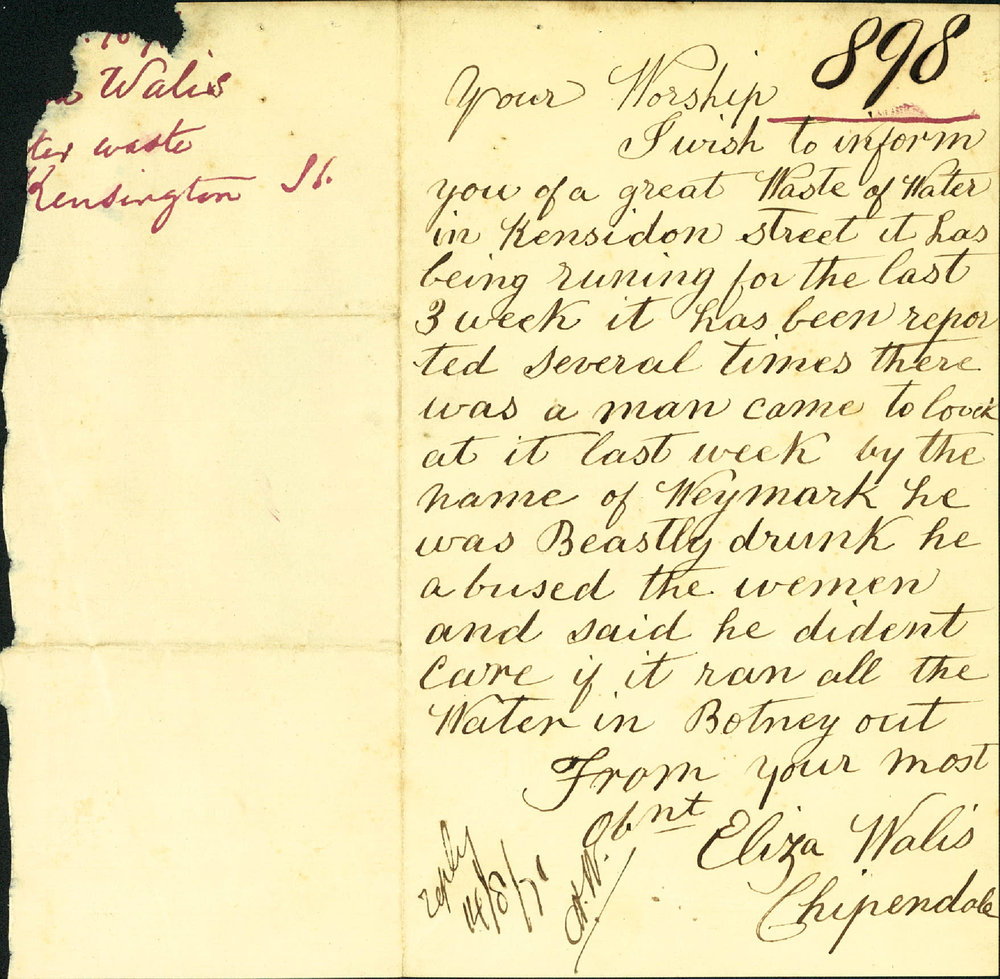 Walis
ter waste
Kensington St.
898
Your Worship
I wish to inform
you of a great Waste of Water
in Kensidon street it has
being runing for the last
3 week it has been repor
ted several times there
was a man came to loock
at it last week by the
name of Weymark he
was Beastly drunk he
abused the wemen
and said he dident
care if it ran all the
Water in Botney out
From your most
Obnt
Eliza Walis
Chipendale
reply
14/8/71
A.W.